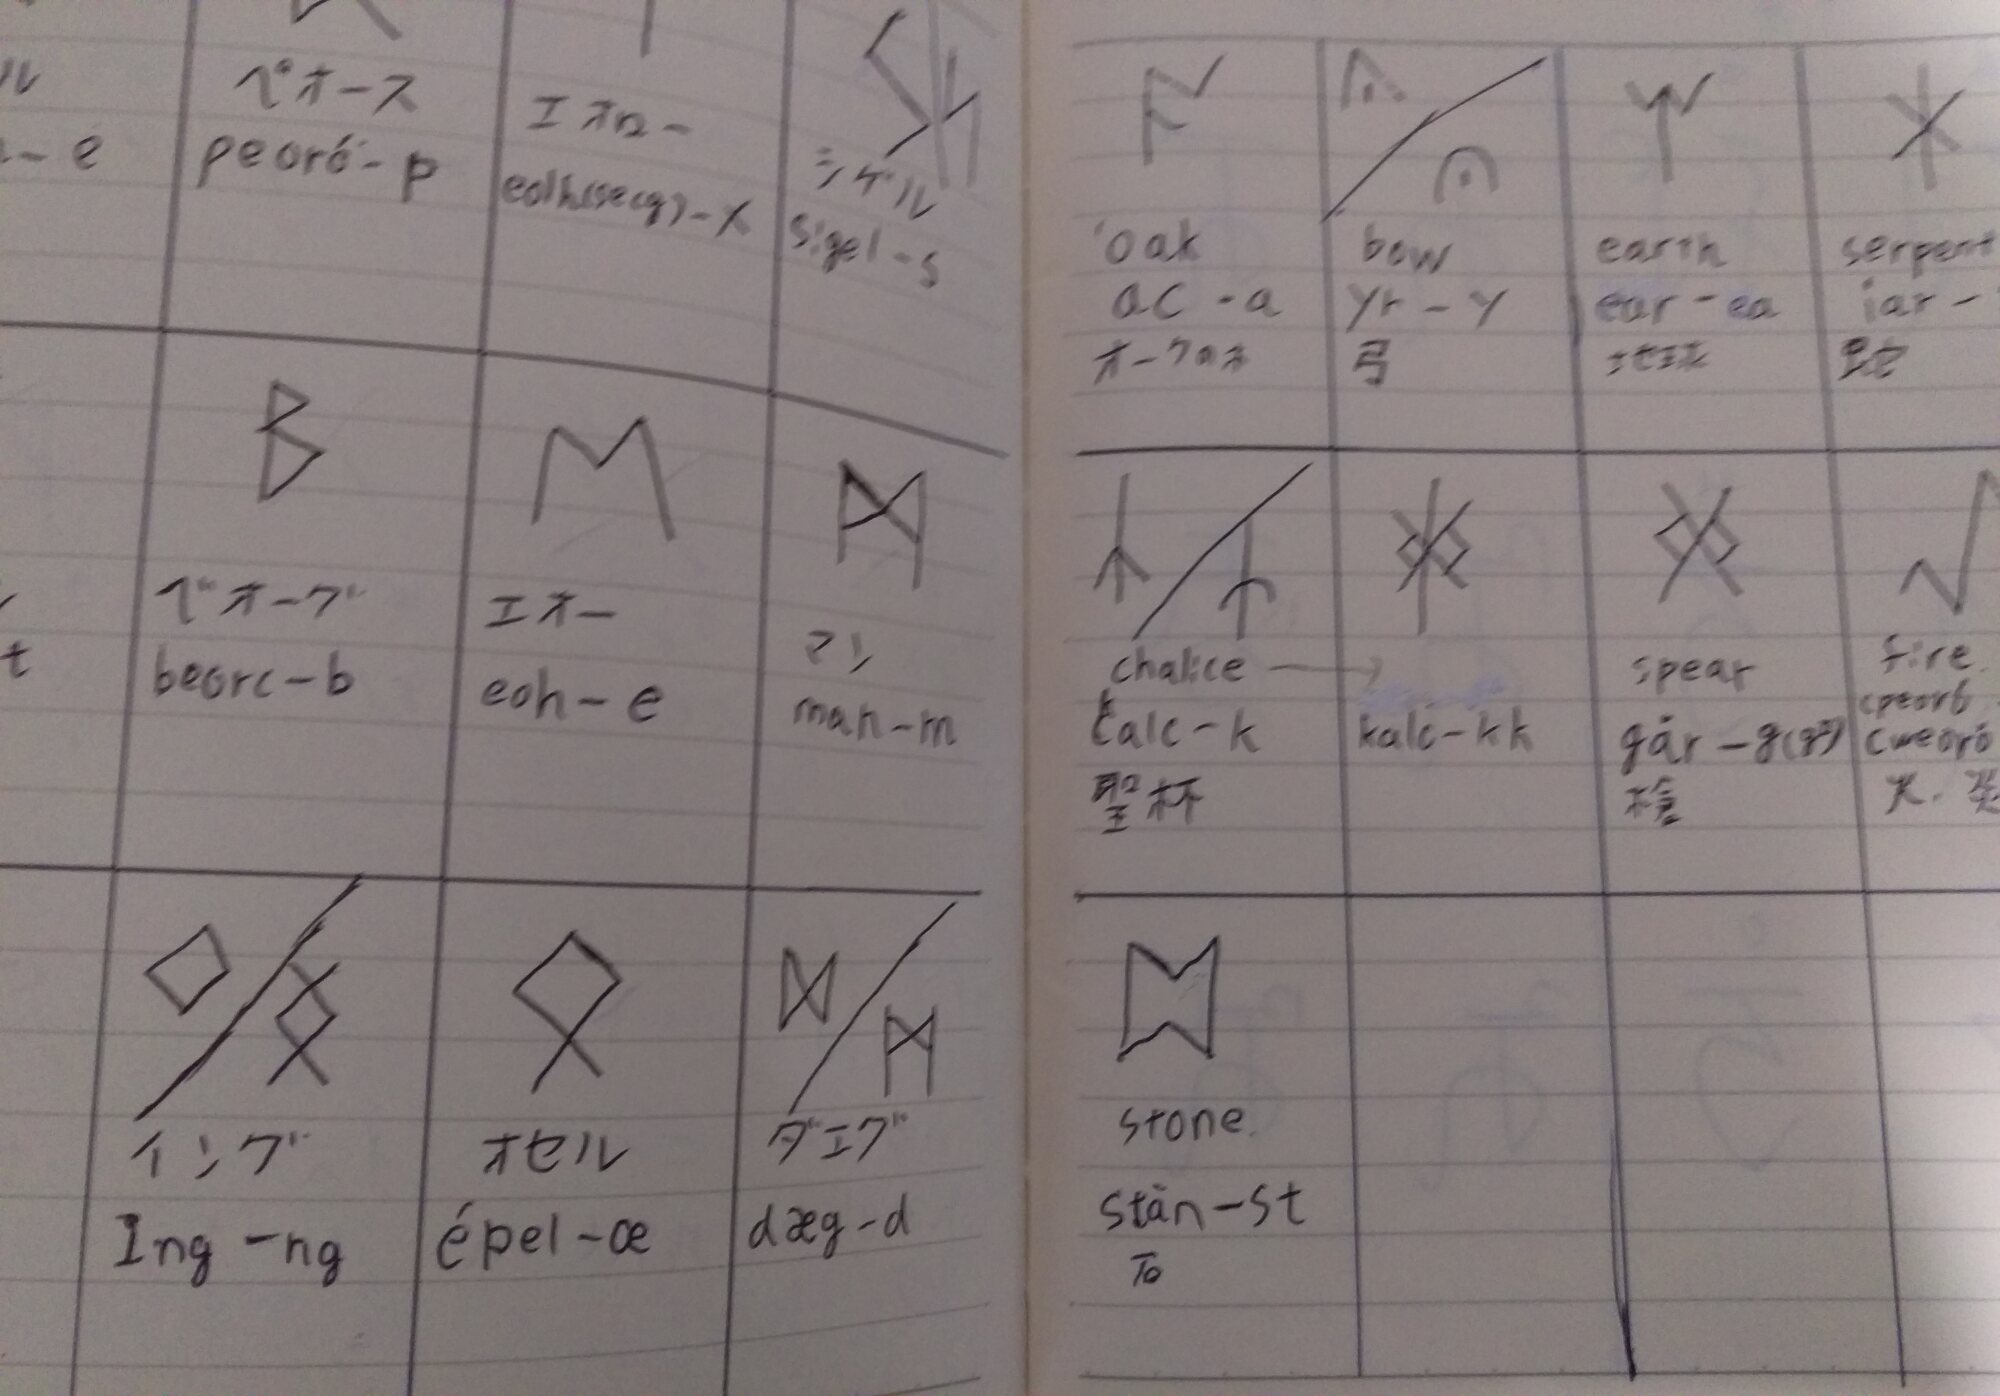 ペオース
peorð - p
エオロー
eolh(secg) - x
シゲル
sigel - s
ベオーグ
beorc - b
エオー
eoh - e
マン
man - m
イング
Ing - ng
オセル
éþel - œ
ダエグ
dæg - d
oak
ac - a
オークの木
bow
yr - y
弓
earth
ear - ea
地球
serpent
iar -
蛇
chalice →
calc - k
聖杯
kalc - kk
spear
gār - g
槍
fire
cweorð
火
stone
stān - st
石